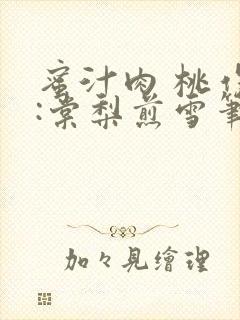 蜜汁肉桃作
:棠梨煎雪筆
加々見繪理